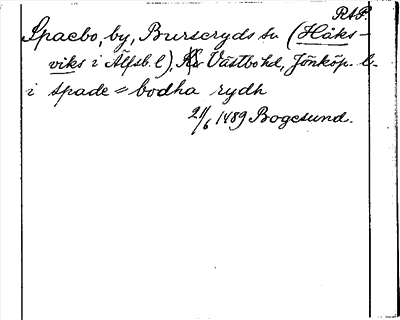 RAP.
Spaebo, by, Burseryds sn (Håks-
viks i Älfsb. l), Västbo hd, Jönköp. l.
i spade = bodha rydh
21/6 1489 Bogesund.